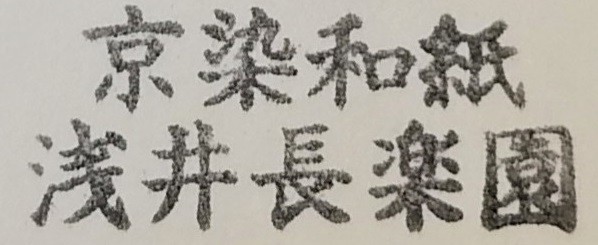 京染和紙
浅井長楽園